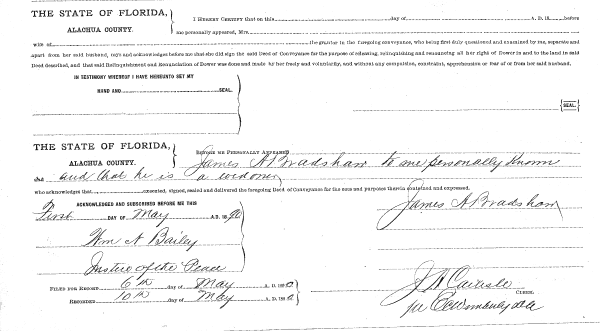 THE STATE OF FLORIDA,
ALACHUA COUNTY.
I HEREBY CERTIFY that on this day of A. D. 18 before
me personally appeared, Mrs.
wife of the grantor in the foregoing conveyance, who being first duly questioned and examined by me, separate and
apart from her said husband, says and acknowledges before me that she did sign the said Deed of Conveyance for the purpose of releasing, relinquishing and renouncing all her right of Dower in and to the land in said
Deed described, and that said Relinquishment and Renunciation of Dower was done and made by her freely and voluntarily, and without any compulsion, constraint, apprehension or fear of or from her said husband.
IN TESTIMONY WHEREOF I HAVE HEREUNTO SET MY
HAND AND SEAL.
SEAL.
THE STATE OF FLORIDA,
ALACHUA COUNTY.
BEFORE ME PERSONALLY APPEARED
James A Bradshaw to me personally known
and that he is a widower
who acknowledges that executed, signed, sealed and delivered the foregoing Deed of Conveyance for the uses and purposes therein contained and expressed.
ACKNOWLEDGED AND SUBSCRIBED BEFORE ME THIS
First DAY OF May A.D. 18 90
James A Bradshaw
Wm A Bailey
Justice of the Peace
FILED FOR RECORD 6th day of May A. D. 1890
RECORDED 10th day of May A. D. 1890
J A Carlisle
CLERK.
per